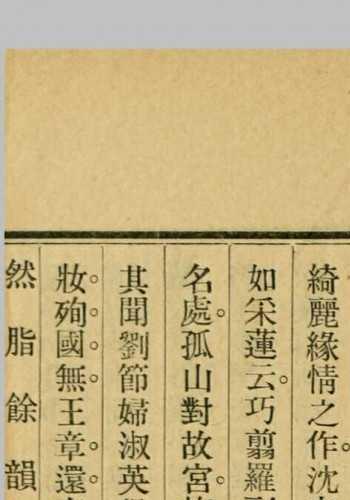 綺麗緣情之作沈
如采蓮云。巧翦羅
名處。孤山對故宮。
其聞劉節婦淑英
妝。殉國。無王章。還。
然脂餘韻